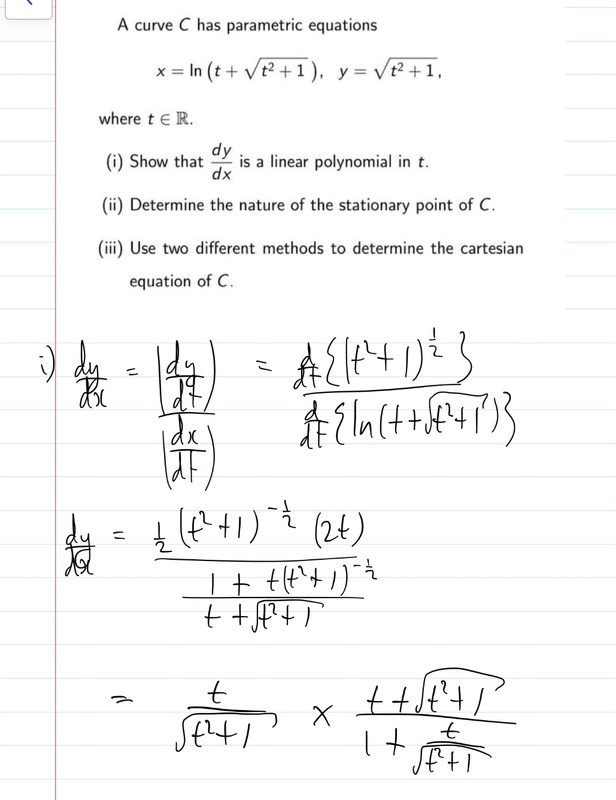 A curve C has parametric equations
x = ln (t + √(t² + 1)), y = √(t² + 1),
where t ∈ ℝ.
(i) Show that dy/dx is a linear polynomial in t.
(ii) Determine the nature of the stationary point of C.
(iii) Use two different methods to determine the cartesian
equation of C.
i) dy/dx = (dy/dt)/(dx/dt) = d/dt{(t²+1)^(1/2)} / d/dt{ln(t+√(t²+1))}
dy/dx = (1/2 (t²+1)^(-1/2) (2t)) / ((1 + t(t²+1)^(-1/2))/(t+√(t²+1)))
= t/√(t²+1) × (t+√(t²+1))/(1 + t/√(t²+1))